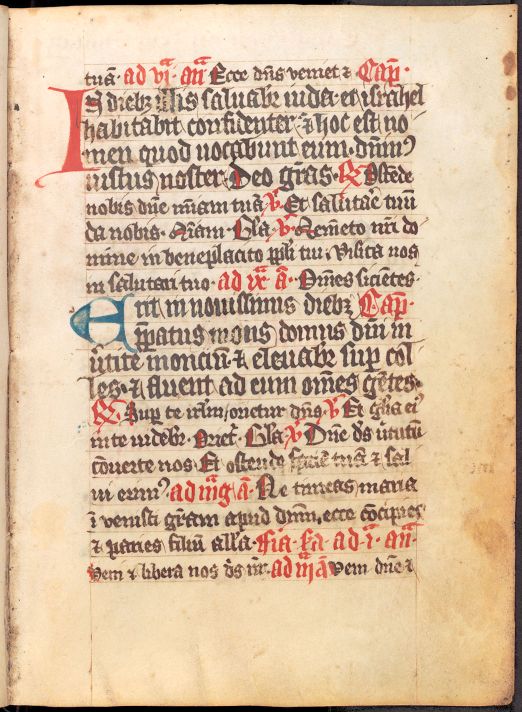 tuā· ad vi· añ Ecce dn̄s veniet ⁊ Cap̄·
IS diebꝫ illis saluabr̄ iuda· et israhel
habitabit confidenter· ⁊ hoc est no
men quod uocabunt eum· dn̄m
iustus noster· Deo gr̄as· R̄ Ostēde
nobis dn̄e m̄iam tuā v̄ Et salutar̄e tuū
da nobis· Gl̄a v̄ Mem̄eto nr̄i do
mine in beneplacito ppl̄i tui· Visita nos
in salutari tuo· ad ix a· Om̄es sicientes·
Erit in nouissimis diebꝫ Cap̄·
p̄patus mons domus dn̄i in
u̇tice monciū· ⁊ eleuabr̄ sup̄ col
les· ⁊ fluent ad eum om̄es gētes·
R̄ Sup̄ te irl̄m orietur dn̄s v̄ Et gl̄ia ei
in te uidebr̄· Gl̄a v̄ Dn̄e ds̄ u̇tutū
cōuerte nos Et ostende faciē tuā ⁊ sal
ui erim⁹ ad mg̅ a· Ne timeas maria
ī venisti gr̄am apud dn̄m, ecce cōcipies
⁊ paries filiū all̄a· Fīa· s̄a ad i· añ
Veni ⁊ libera nos ds̄ nr̄· ad iii a Veni dn̄e ⁊